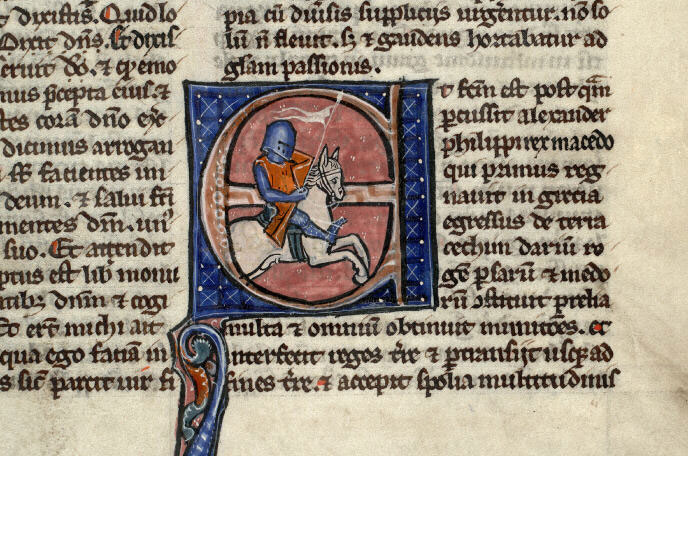 dixistis. Quid lo
Dixit dn̄s. Et dixis
seruit dō. ⁊ q̄ emo
mus p̄cepta eius. ⁊
tes corā dn̄o exe
dicimus arrogan
facientes im
deum. ⁊ salui fc̄i
mentes dn̄m. un'
suo. Et attendit
ptus est lib̄ monu
ntibȝ dn̄m ⁊ cogi
Et er̄t michi ait
qua ego faciam in
s sic̄ parcit uir fi
pia cū diu̾sis suppliciis urgentur. nō so
lū n̄ fleuit. sȝ ⁊ gaudens hortabatur ad
gl̄am passionis.
Et fc̄m est postq̄m
percussit alexander
philippi rex macedo
qui primus reg
nauit in grecia
egressus de terra
cethim dariū re
gē p̱sarū ⁊ medo
rū ostituit prelia
multa ⁊ omniū obtinuit munitōes. et
interfecit reges tr̄e ⁊ p̱transijt usqȝ ad
fines tr̄e. ⁊ accepit spolia multitudinis